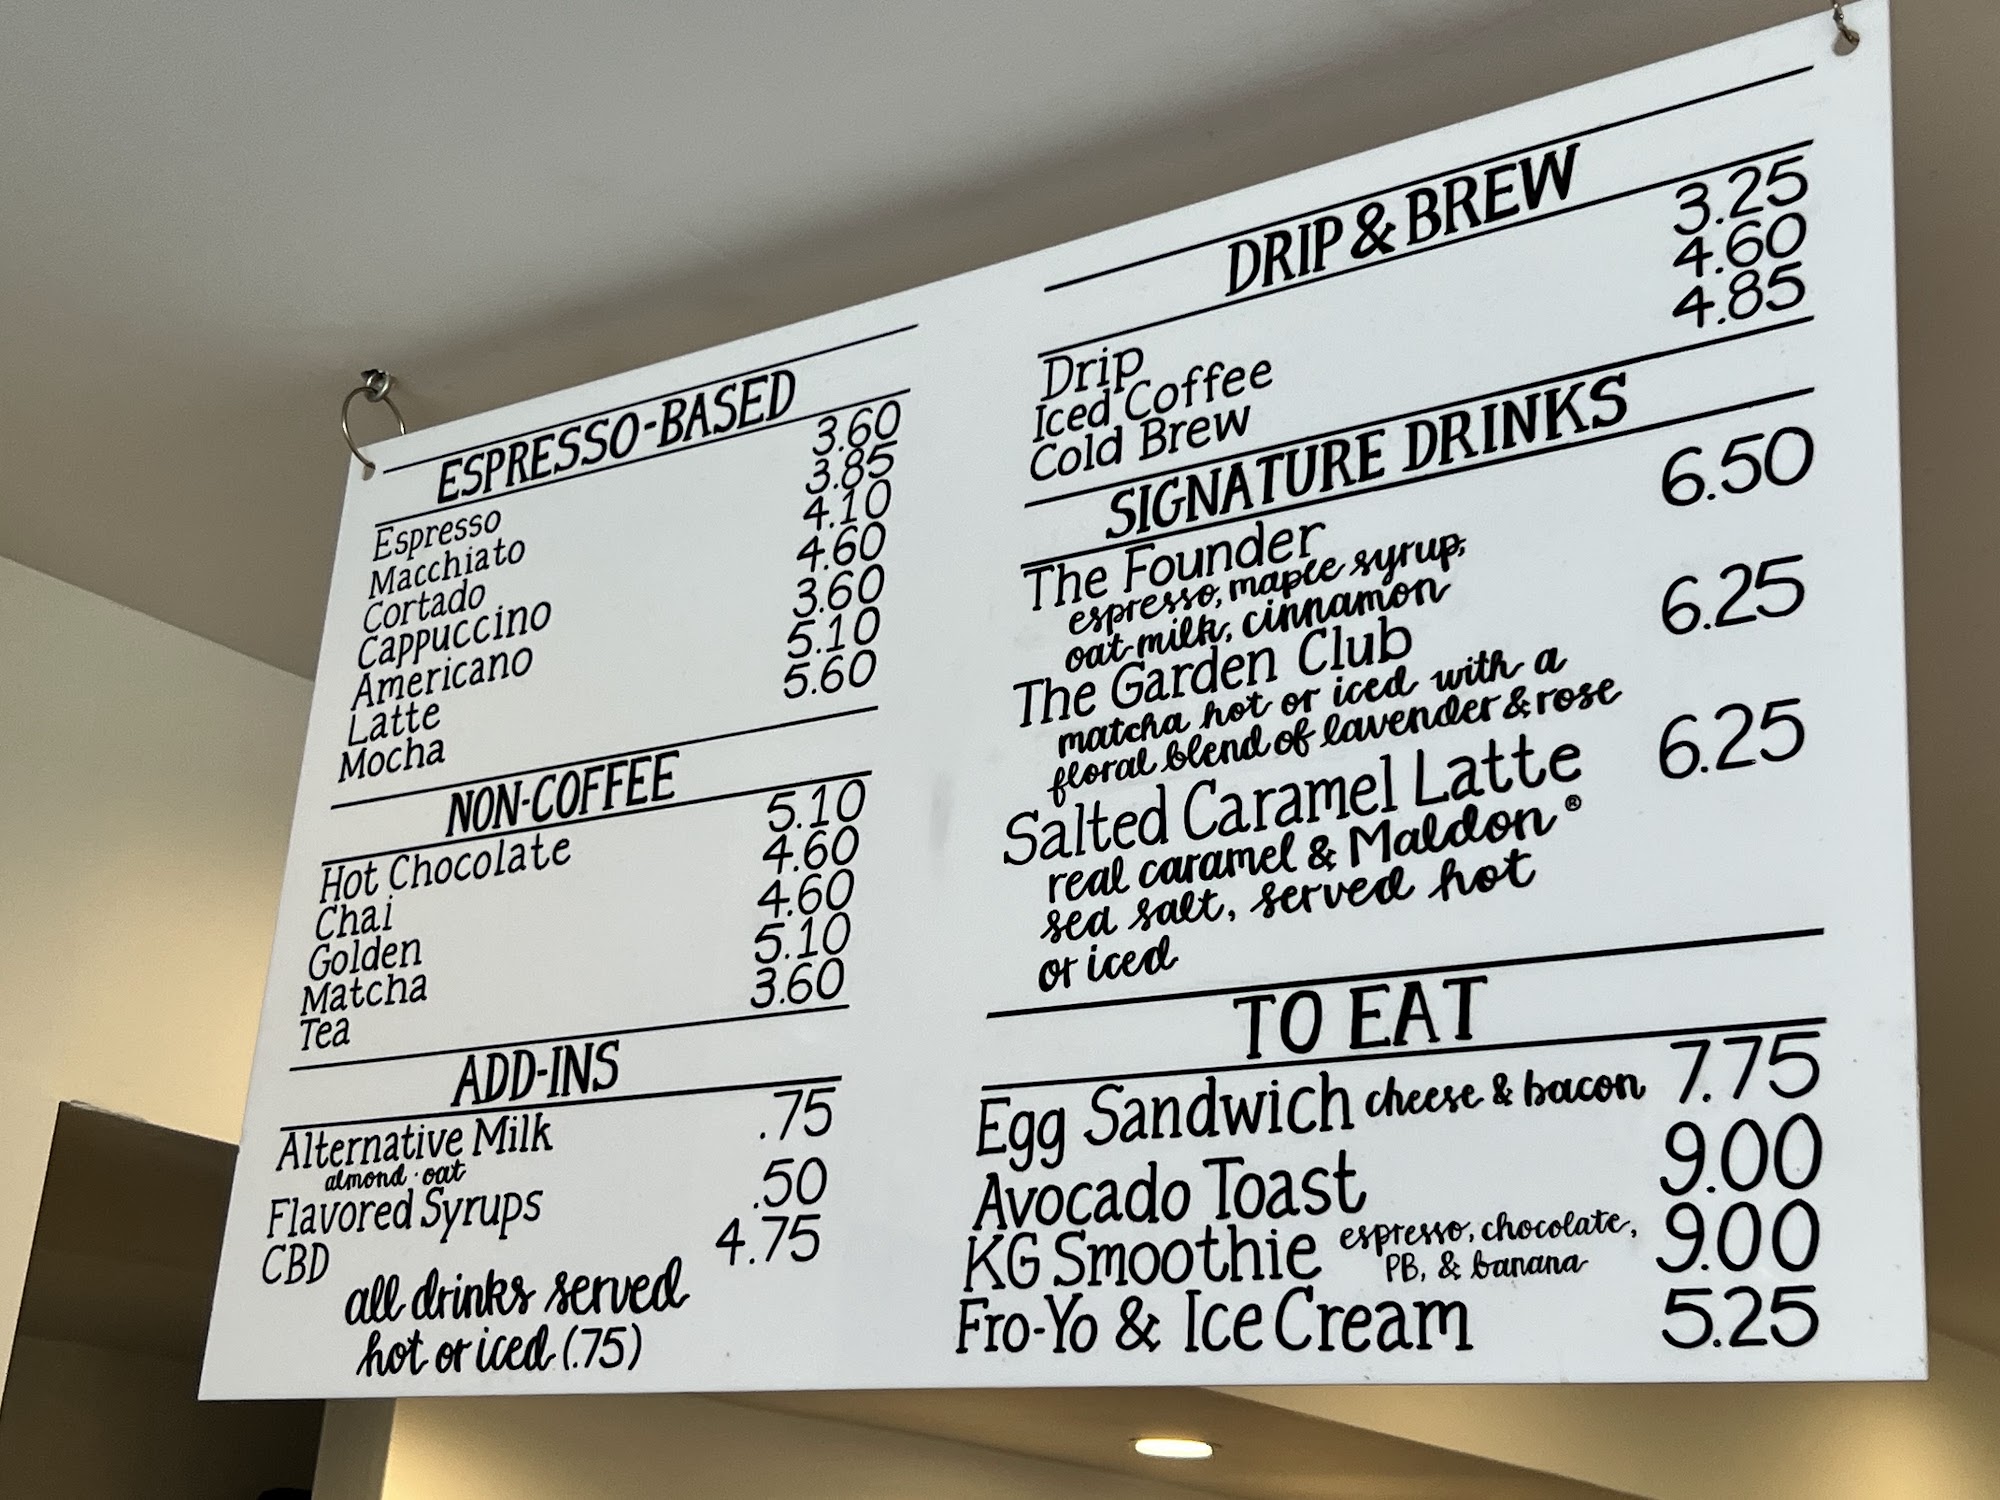 ESPRESSO-BASED
Espresso 3.60
Macchiato 3.85
Cortado 4.10
Cappuccino 4.60
Americano 3.60
Latte 5.10
Mocha 5.60
NON-COFFEE
Hot Chocolate 5.10
Chai 4.60
Golden 4.60
Matcha 5.10
Tea 3.60
ADD-INS
Alternative Milk .75
almond · oat
Flavored Syrups .50
CBD 4.75
all drinks served
hot or iced (.75)
DRIP & BREW
Drip 3.25
Iced Coffee 4.60
Cold Brew 4.85
SIGNATURE DRINKS
The Founder 6.50
espresso, maple syrup,
oat milk, cinnamon
The Garden Club 6.25
matcha hot or iced with a
floral blend of lavender & rose
Salted Caramel Latte 6.25
real caramel & Maldon®
sea salt, served hot
or iced
TO EAT
Egg Sandwich cheese & bacon 7.75
Avocado Toast 9.00
KG Smoothie espresso, chocolate, 9.00
PB, & banana
Fro-Yo & Ice Cream 5.25